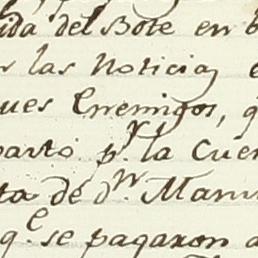 ida del Bote en 6
r las Noticias e
ues Enemigos, q
parto pr. la Cuen
ta de dn. Manu
qe se pagaron a